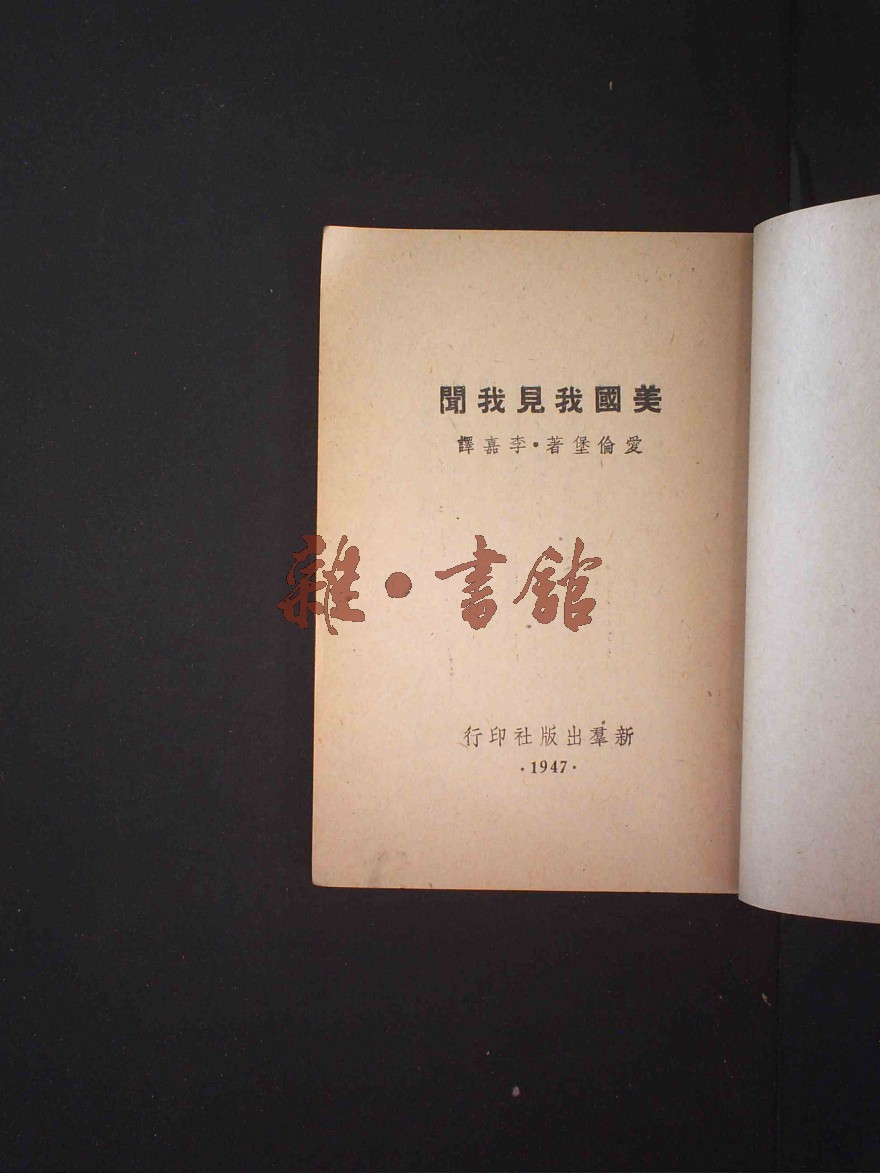 美國我見我聞
愛倫堡著・李嘉譯
雜・書館
新羣出版社印行
・1947・